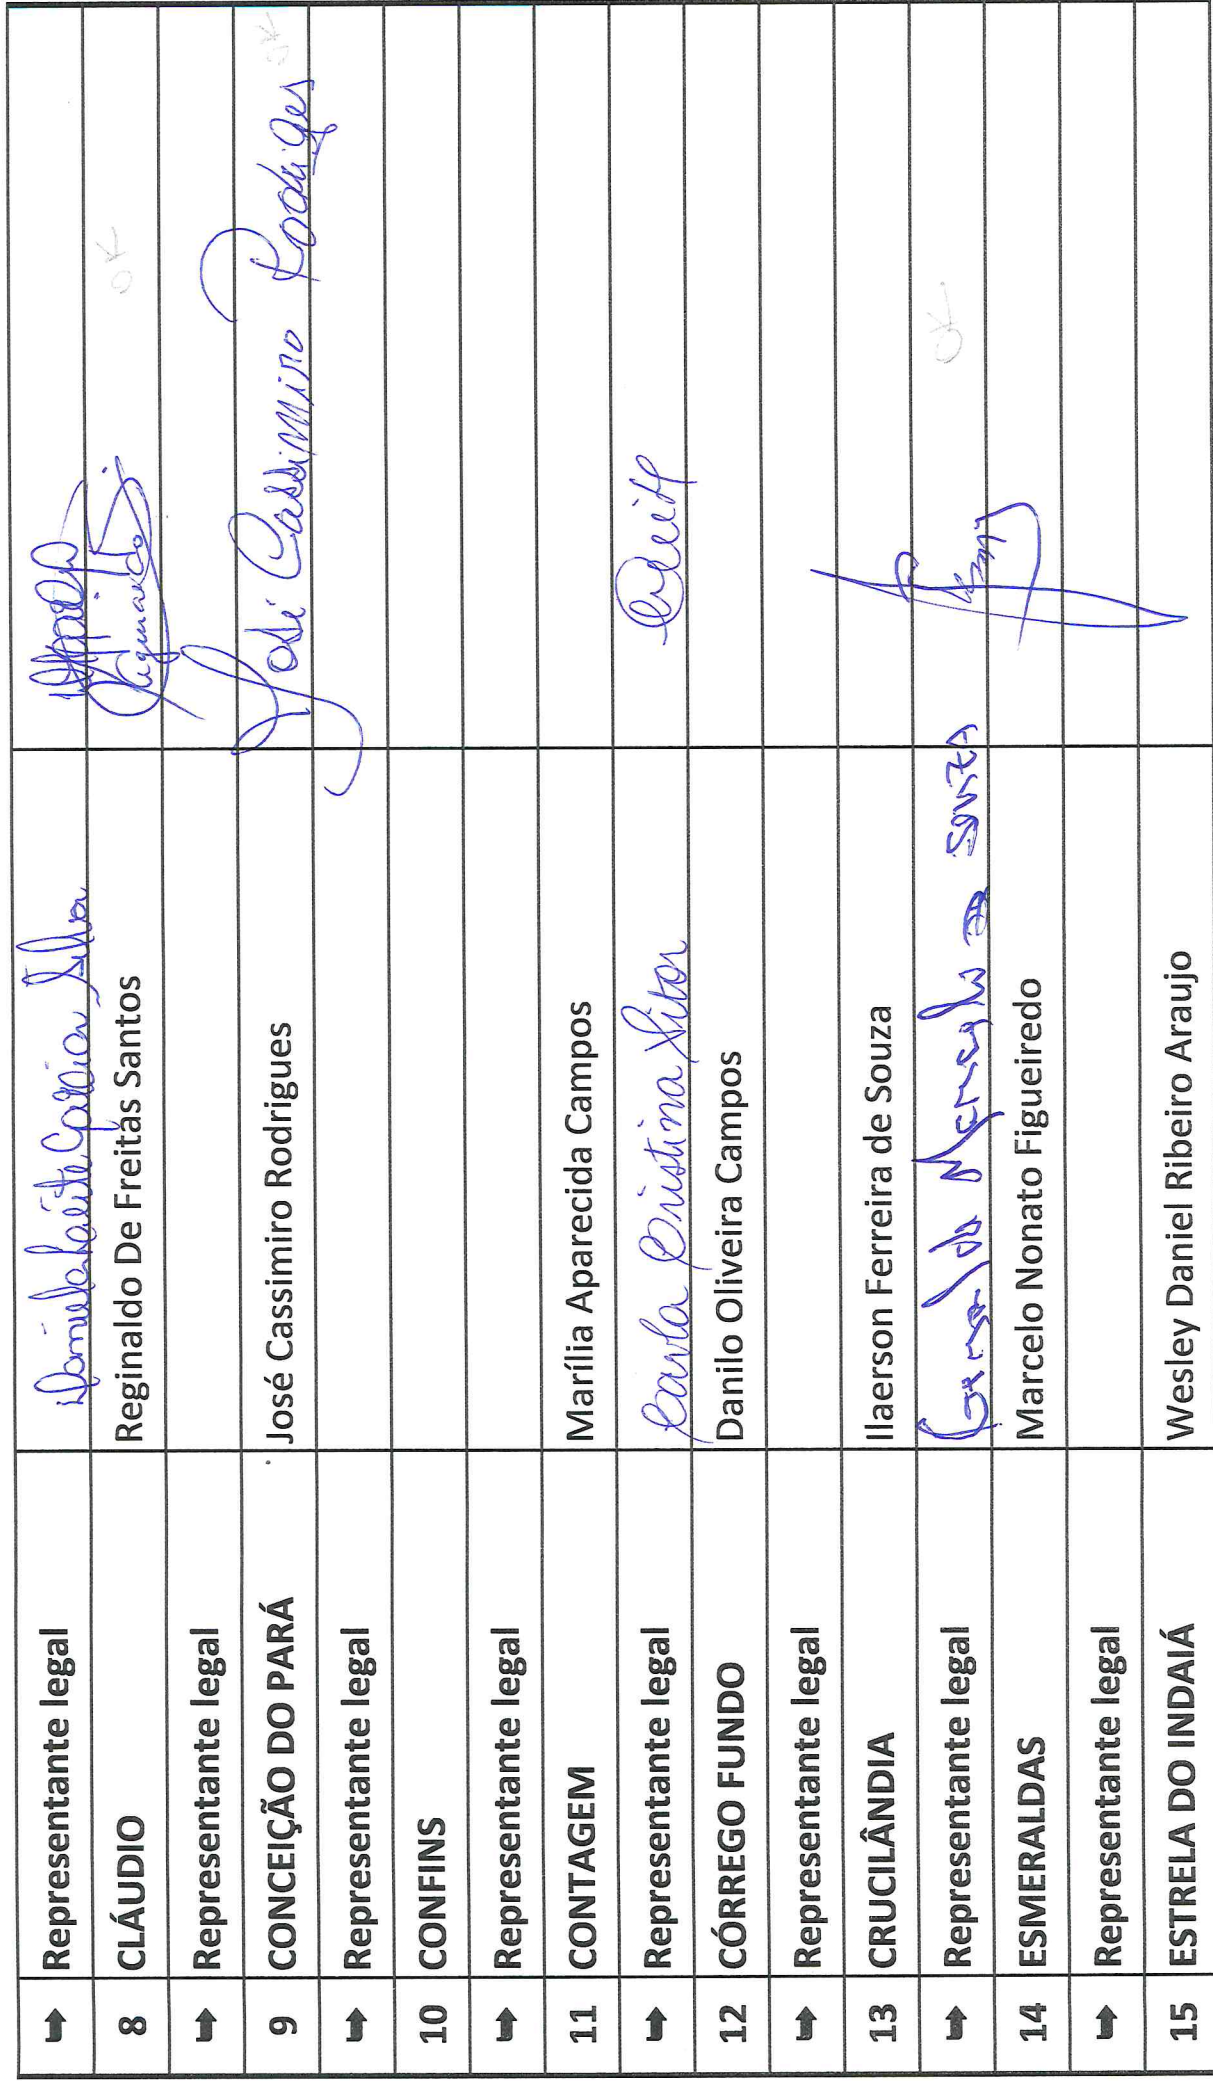 ➥ Representante legal
8 CLÁUDIO Reginaldo De Freitas Santos OK
➥ Representante legal
9 CONCEIÇÃO DO PARÁ José Cassimiro Rodrigues José Cassimiro Rodriges OK
➥ Representante legal
10 CONFINS
➥ Representante legal
11 CONTAGEM Marília Aparecida Campos
➥ Representante legal Carla Cristina
12 CÓRREGO FUNDO Danilo Oliveira Campos
➥ Representante legal
13 CRUCILÂNDIA Ilaerson Ferreira de Souza
➥ Representante legal Souza OK
14 ESMERALDAS Marcelo Nonato Figueiredo
➥ Representante legal
15 ESTRELA DO INDAIÁ Wesley Daniel Ribeiro Araujo